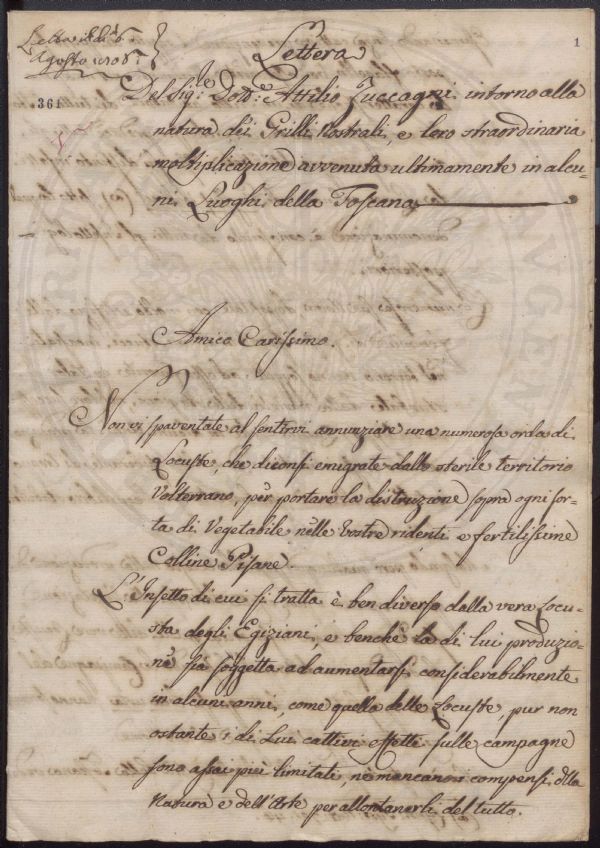 Letta il dì 6.
Agosto 1806.
1
361
Lettera
Del Sig.re Dott.re Attilio Zuccagni intorno alla
natura dei Grilli Nostrali, e loro straordinaria
moltiplicazione avvenuta ultimamente in alcu-
ni Luoghi della Toscana
Amico Carissimo.
Non vi spaventate al sentirvi annunziare una numerosa orda di
Locuste, che diconsi emigrate dallo sterile territorio
Volterrano, per portare la distruzione sopra ogni sor-
ta di Vegetabile nelle vostre ridenti e fertilissime
Colline Pisane.
L'Insetto di cui si tratta è ben diverso dalla vera Locu-
sta degli Egiziani, e benchè la di lui produzio-
ne sia soggetta ad aumentarsi considerabilmente
in alcuni anni, come quella delle Locuste, pur non
ostante i di Lui cattivi effetti sulle campagne
sono assai più limitati, ne mancano i compensi dlla
Natura e dell'Arte per allontanerli del tutto.